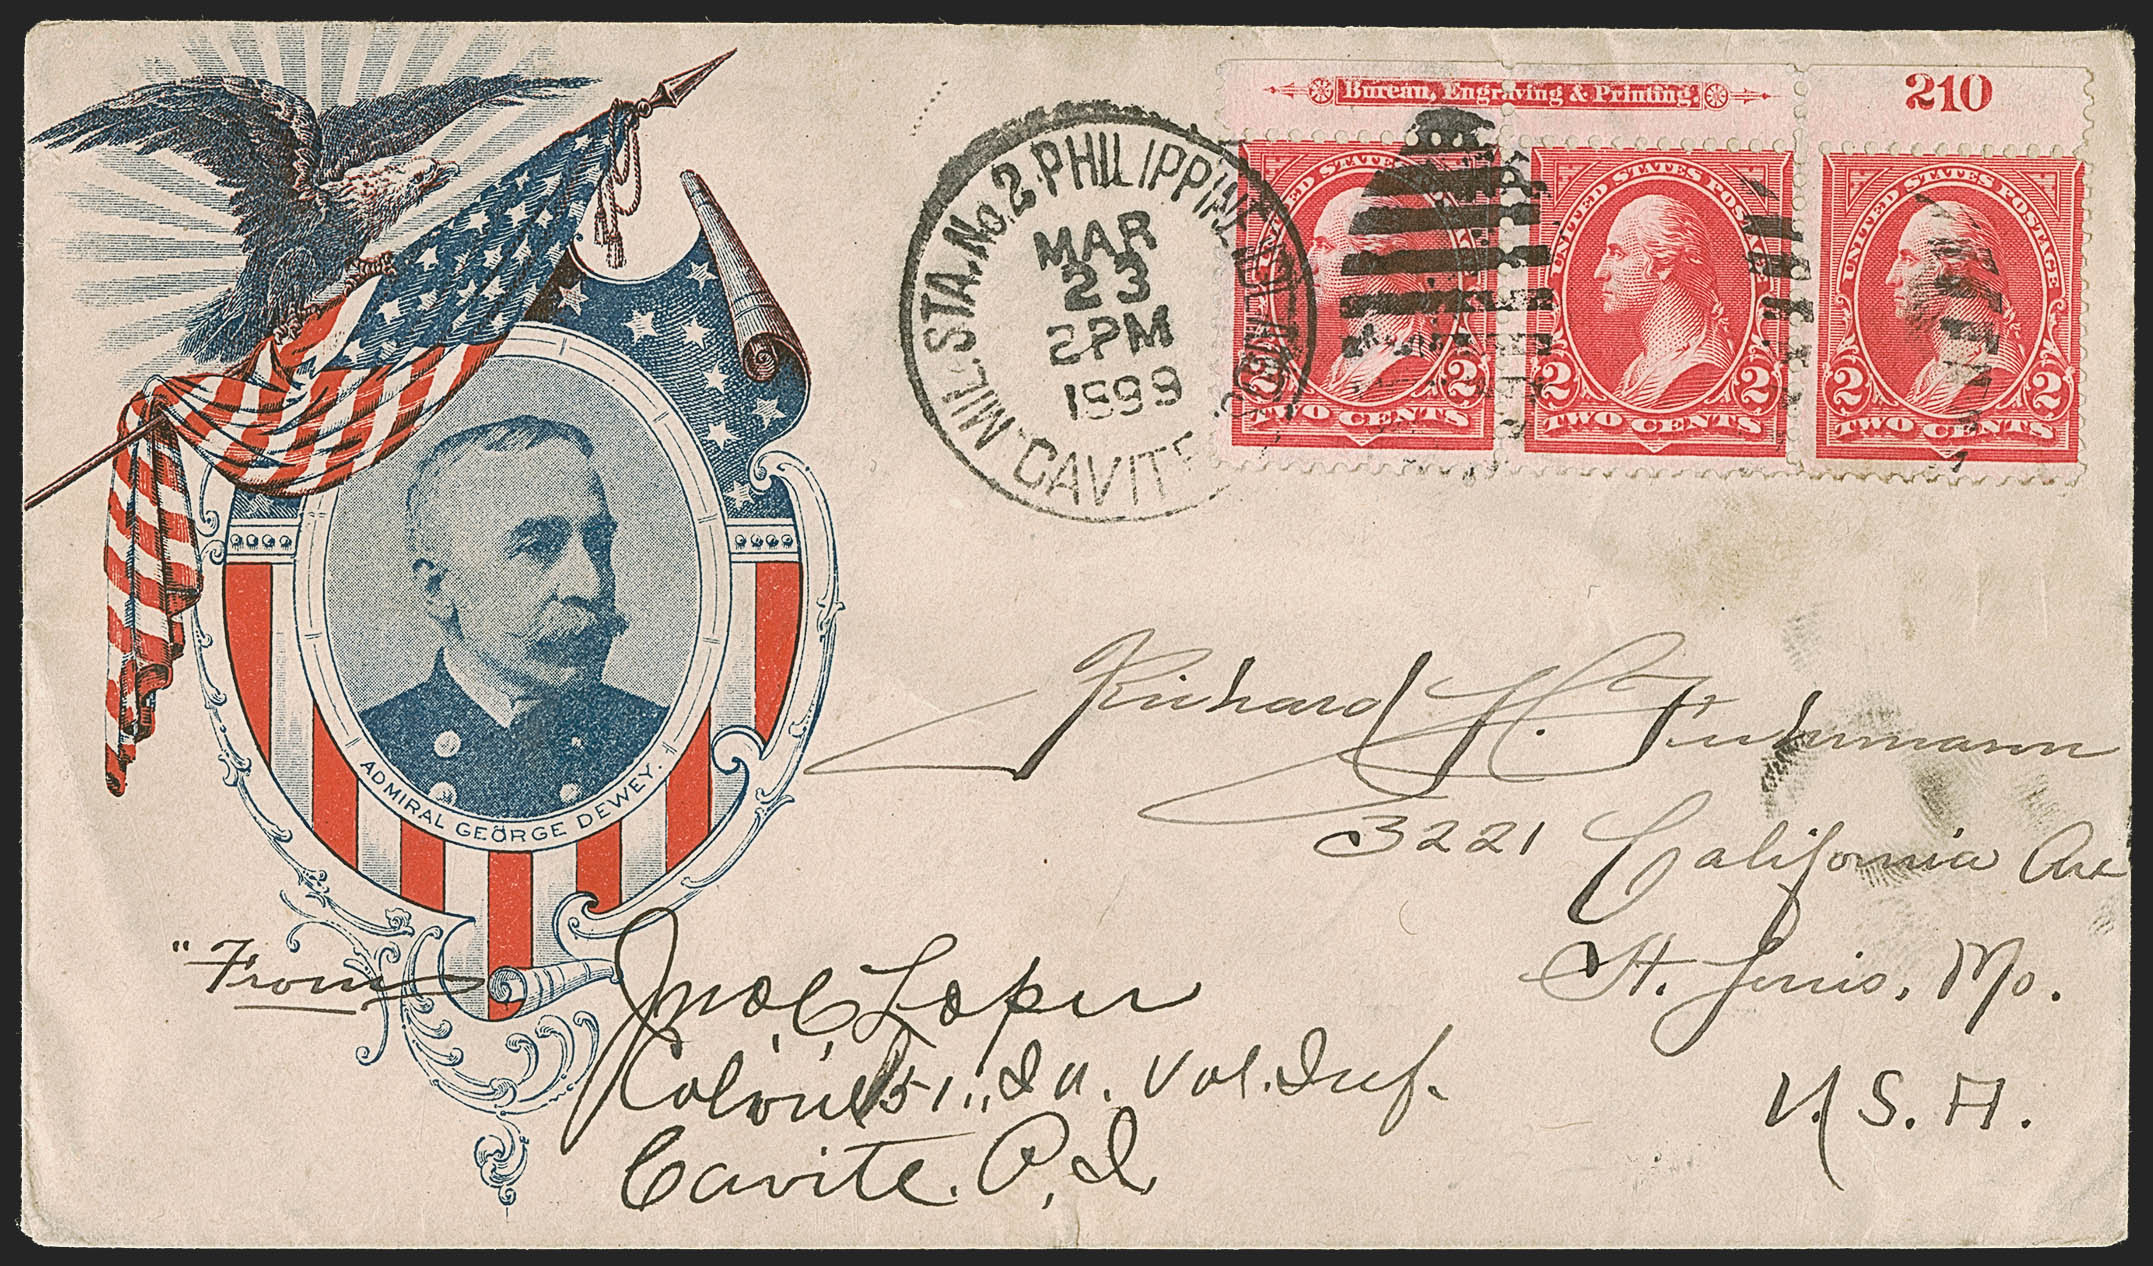 Bureau, Engraving & Printing
210
MIL. STA. No. 2 PHILIPPINE
MAR
23
2PM
1899
CAVITE
UNITED STATES POSTAGE
2 2
TWO CENTS
UNITED STATES POSTAGE
2 2
TWO CENTS
UNITED STATES POSTAGE
2 2
TWO CENTS
ADMIRAL GEORGE DEWEY.
Richard H. Fuhrmann
3221 California Ave
St. Louis, Mo.
U. S. A.
"From
Jno. C. Loper
Colonel 51" Ia. Vol. Inf.
Cavite. P. I